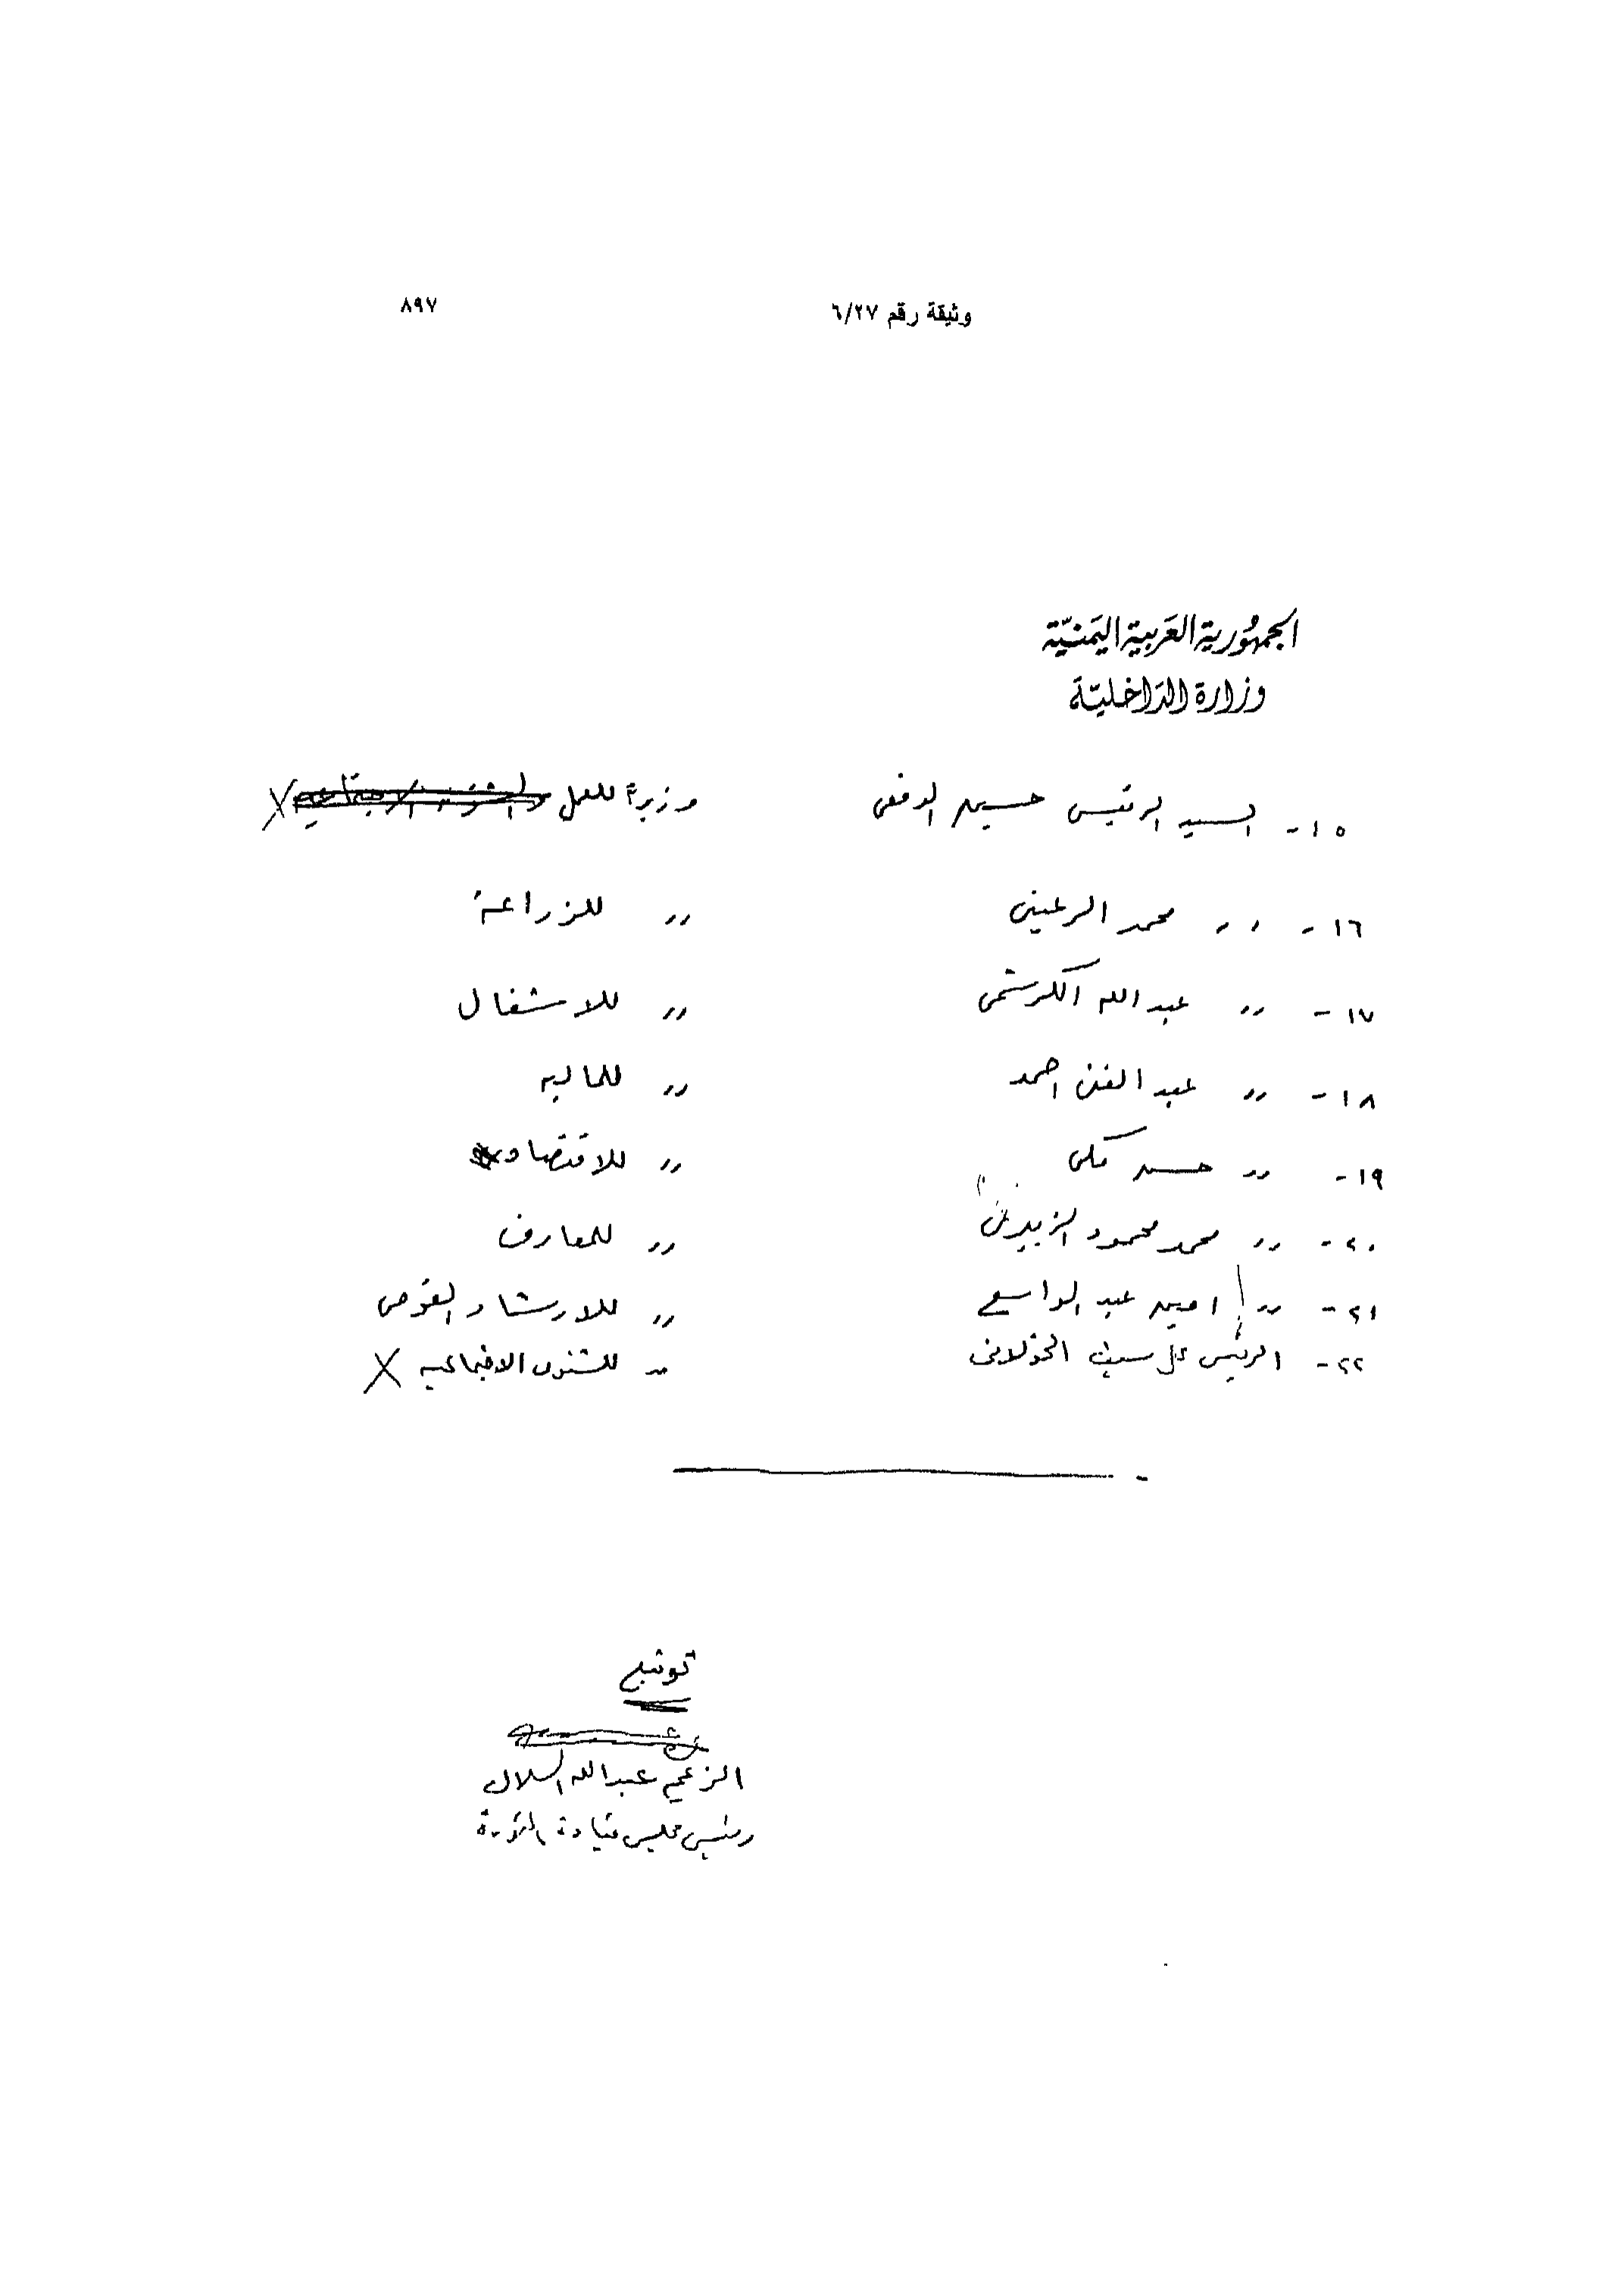 وثيقة رقم ٦/٢٧ ٨٩٧
الجمهورية العربية اليمنية
وزارة الداخلية
١٥- السيد الرئيس حسين الدفعي وزيراً للعمل والشئون الاجتماعيه X
١٦- ,, محمد الرعيني ,, للزراعة
١٧- ,, عبدالله الكرشمي ,, للاشغال
١٨- ,, عبد الغني احمد ,, للماليه
١٩- ,, حسن مكي ,, للاقتصاد
٢٠- ,, محمد محمود الزبيري ,, للمعارف
٢١- ,, امين عبد الواسع ,, للارشاد القومي
٢٢- الرئيس علي سيف الخولاني ,, للشئون الاجتماعيه X
توقيع
الزعيم عبدالله السلال
رئيس مجلس قيادة الثورة